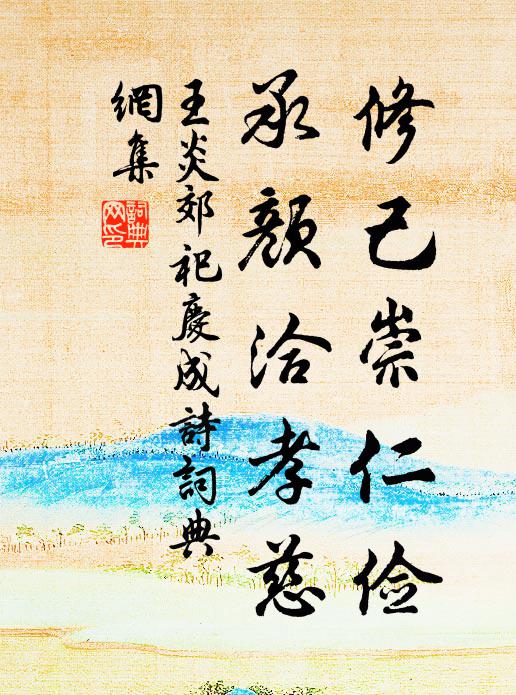 修己崇仁俭
承颜洽孝慈
王炎郊祀慶成詩詞典
網集
詞典
网印